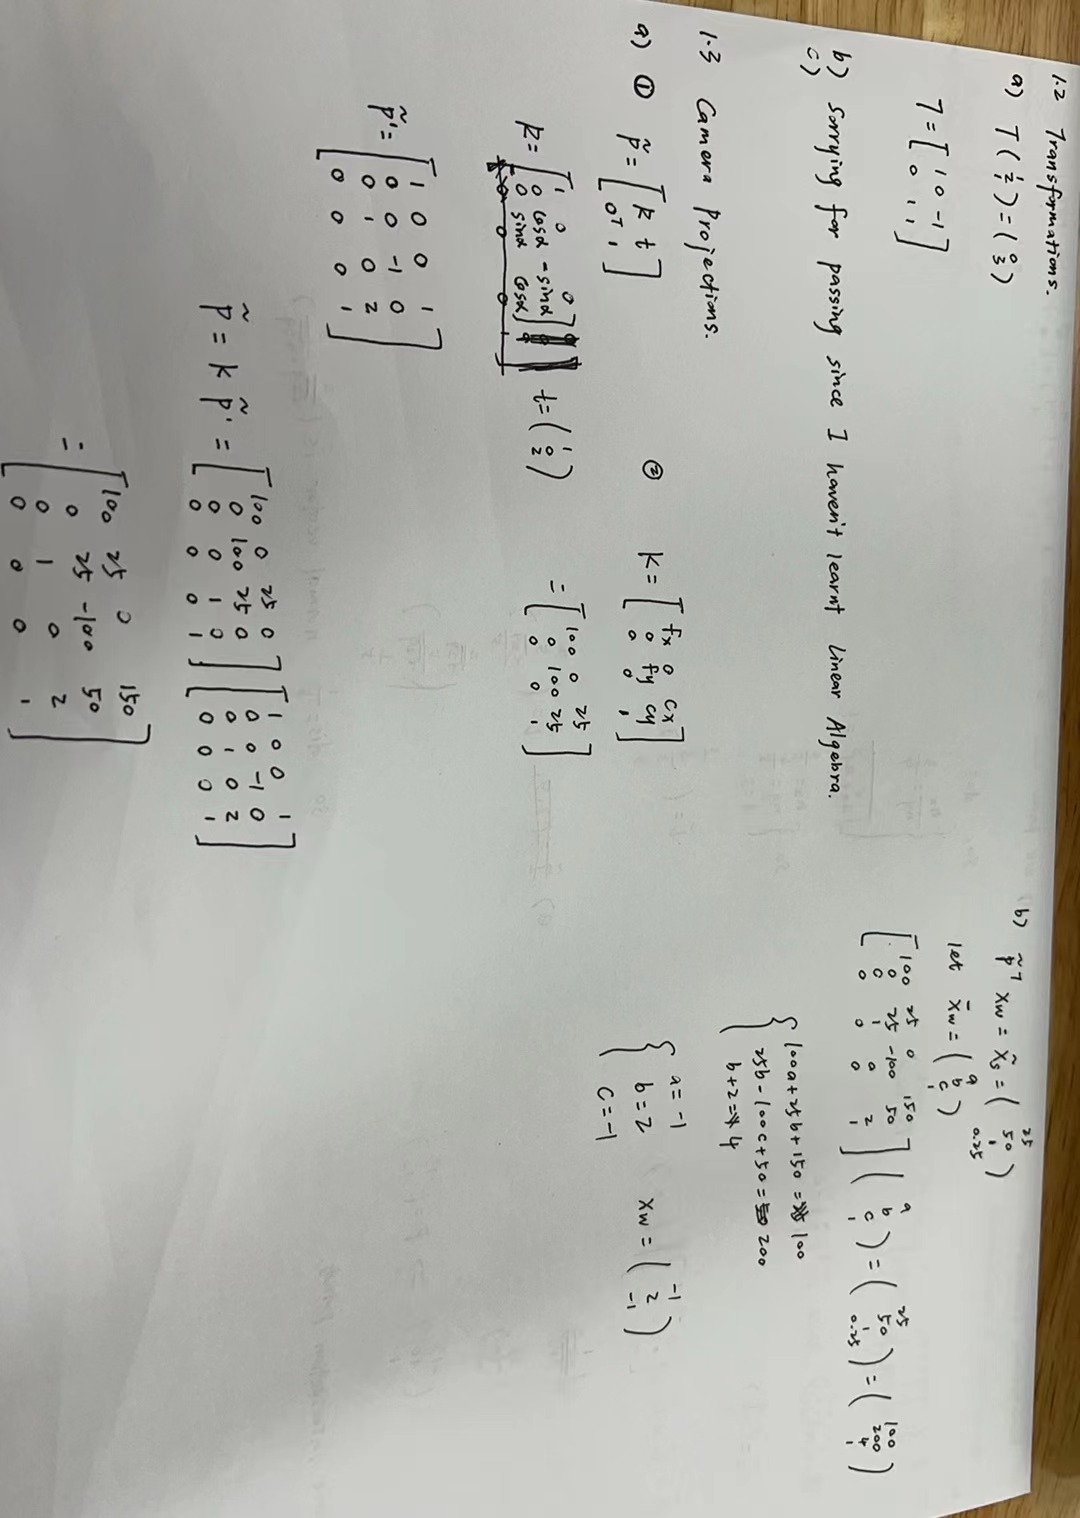 1.2 Transformations.
a) T(1 2) = (0 3)
T = [1 0 -1
0 1 1]
b)
c) Sorrying for passing since I haven't learnt Linear Algebra.
1.3 Camera Projections.
a) ① p̃ = [R t
0ᵀ 1]
R = [1 0 0
0 cosα -sinα
0 sinα cosα]
t = (1 0 2)
p̃' = [1 0 0 1
0 0 -1 0
0 1 0 2
0 0 0 1]
② K = [fx 0 cx
0 fy cy
0 0 1]
= [100 0 25
0 100 25
0 0 1]
p̃ = K p̃' = [100 0 25 0
0 100 25 0
0 0 1 0
0 0 0 1] [1 0 0 1
0 0 -1 0
0 1 0 2
0 0 0 1]
= [100 25 0 150
0 25 -100 50
0 1 0 2
0 0 0 1]
b) p̃ xw = x̃s = (25 50 1 0.25)
let x̄w = (a b c 1)
[100 25 0 150
0 25 -100 50
0 1 0 2
0 0 0 1] (a b c 1) = (25 50 1 0.25) = (100 200 4 1)
{100a+25b+150=100
25b-100c+50=200
b+2=4
{a=-1
b=2
c=-1
xw = (-1 2 -1)